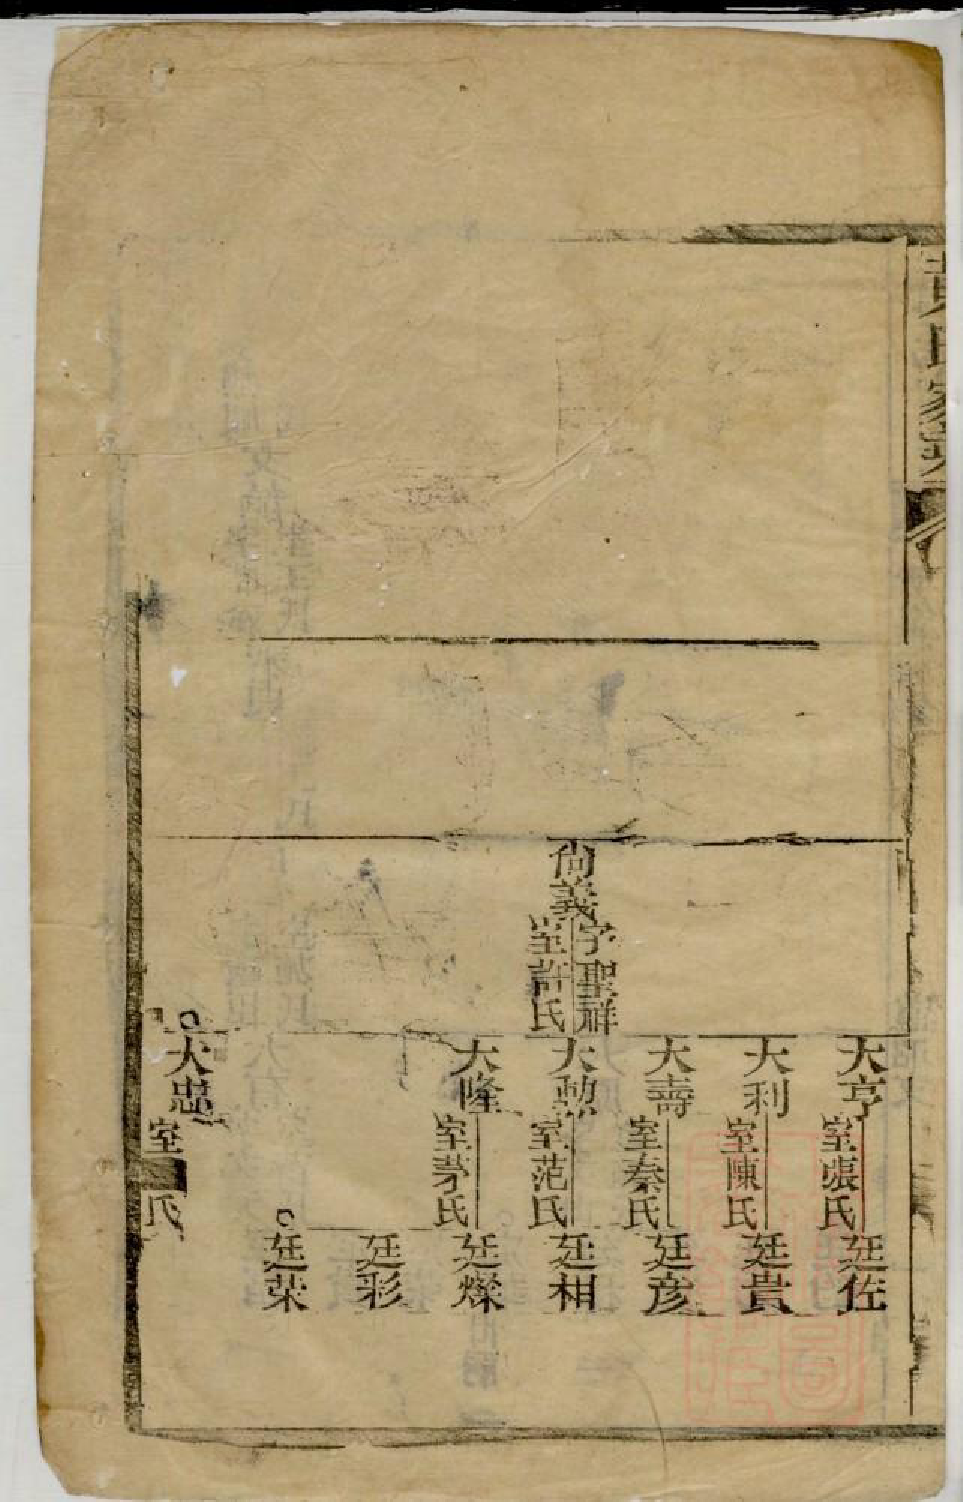 黄氏家乘
尙義
字聖祥
室許氏
大亨
室張氏
大利
室陳氏
大壽
室秦氏
大勲
室范氏
大隆
室茅氏
大忠
室 氏
廷佐
廷貴
廷彦
廷相
廷燦
廷彩
廷荣